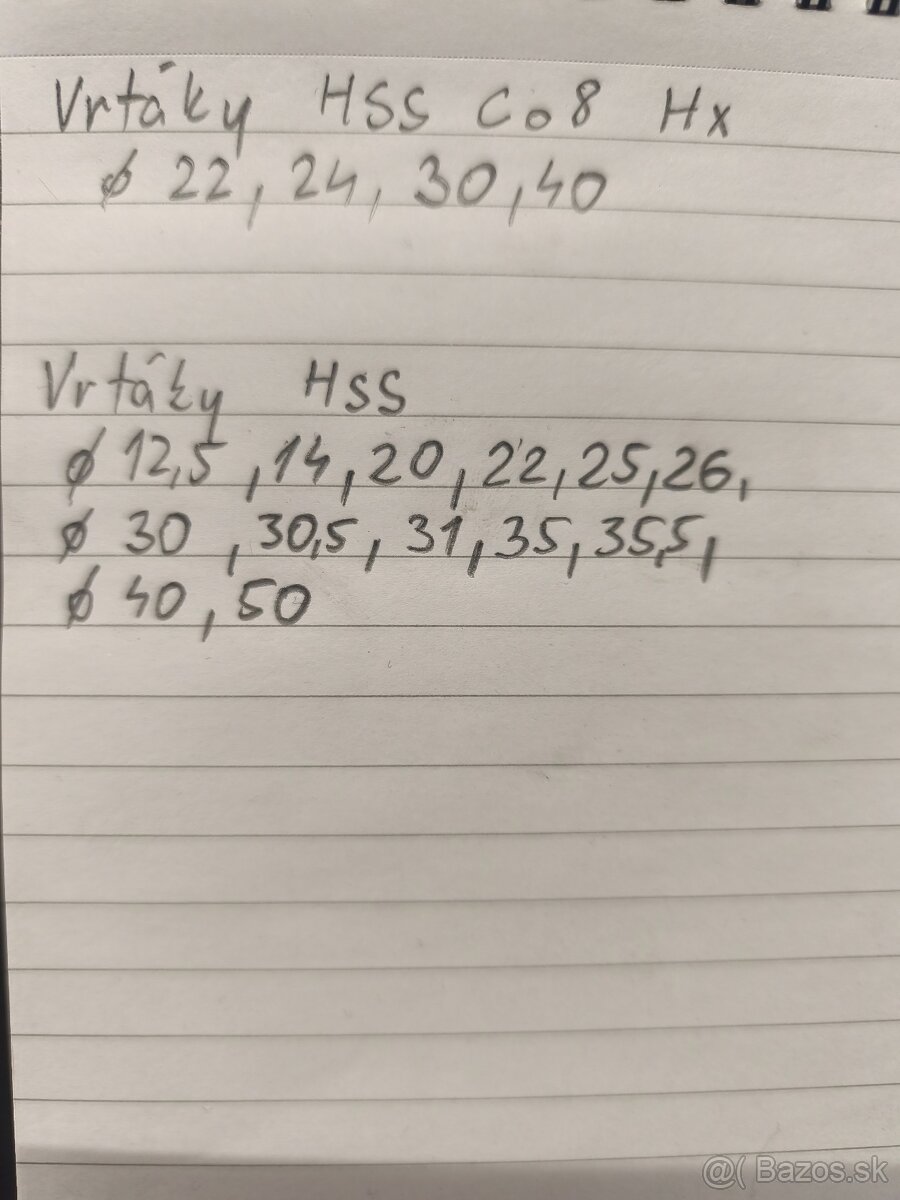 Vrtáky HSS Co8 Hx
ø 22, 24, 30, 40
Vrtáky HSS
ø 12,5, 14, 20, 22, 25, 26,
ø 30, 30,5, 31, 35, 35,5,
ø 40, 50
@( Bazos.sk